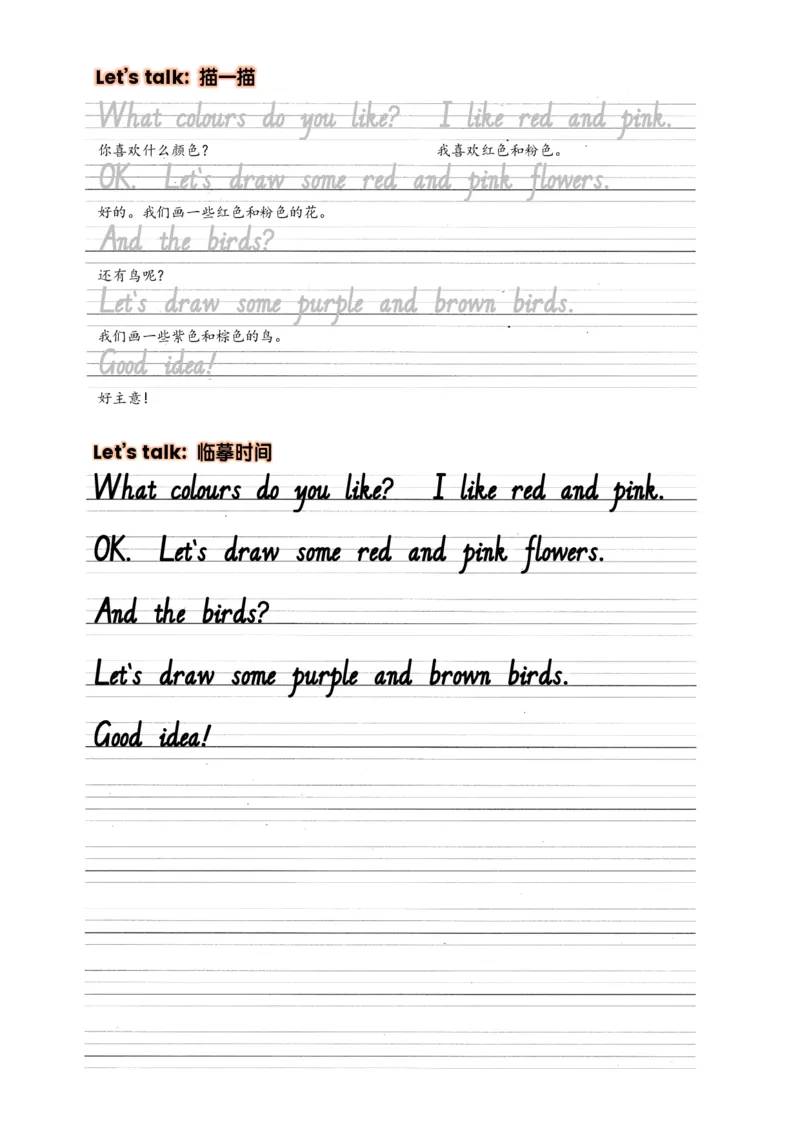 Let's talk: 描一描
What colours do you like? I like red and pink.
你喜欢什么颜色? 我喜欢红色和粉色。
OK. Let's draw some red and pink flowers.
好的。我们画一些红色和粉色的花。
And the birds?
还有鸟呢?
Let's draw some purple and brown birds.
我们画一些紫色和棕色的鸟。
Good idea!
好主意!
Let's talk: 临摹时间
What colours do you like? I like red and pink.
OK. Let's draw some red and pink flowers.
And the birds?
Let's draw some purple and brown birds.
Good idea!